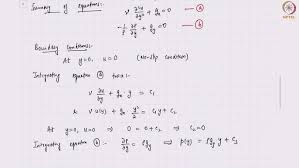 Summary of equations:
ν ∂²u/∂y² + gₓ = 0 — (a)
-1/ρ ∂p/∂y + g_y = 0 — (b)
Boundary Conditions:
At y=0, u=0 (No-slip condition)
Integrating equation (a) twice:
ν ∂u/∂y + gₓ y = C₁
ν u(y) + gₓ y²/2 = C₁y + C₂
At y=0, u=0 ⇒ 0 = 0 + C₂ ⇒ C₂=0
Integrating equation (b): ∂p/∂y = ρg_y ⇒ p(y) = ρg_y y + C₃
NPTEL